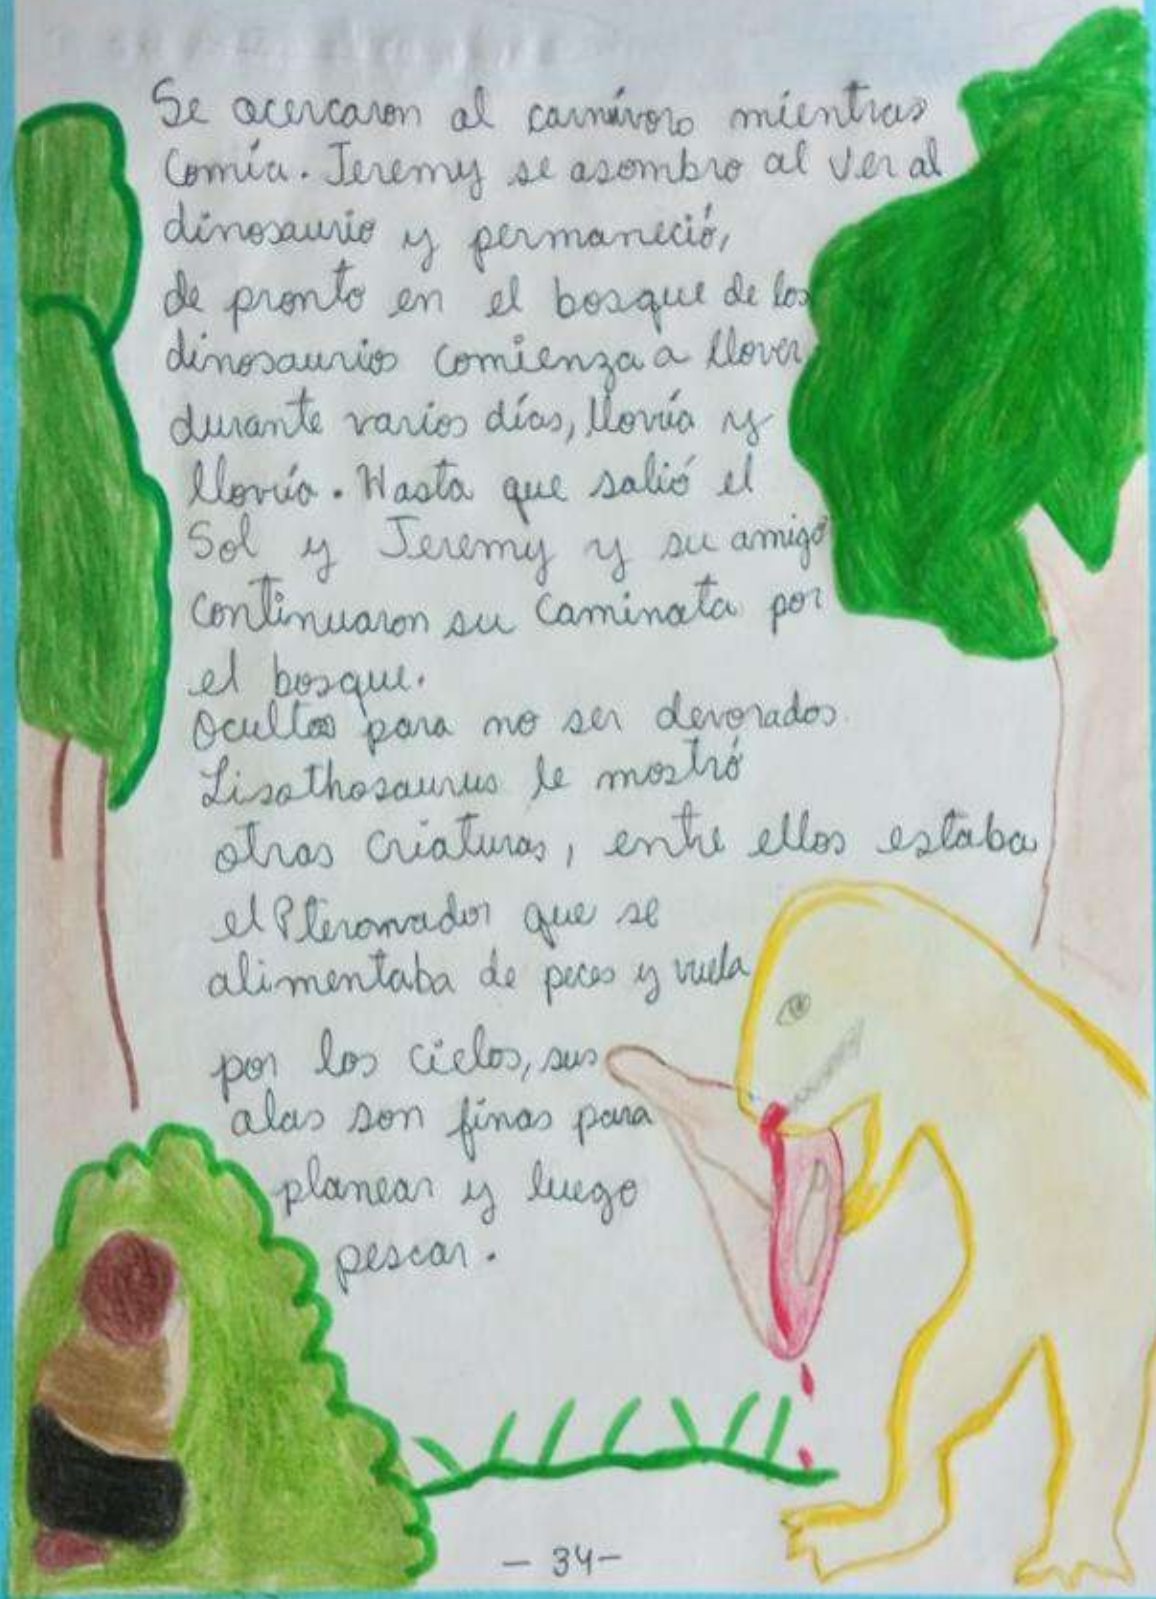 Se acercaron al carnívoro mientras
Comía. Jeremy se asombro al ver al
dinosaurio y permaneció,
de pronto en el bosque de los
dinosaurios comienza a llover
durante varios días, llovía y
llovía. Hasta que salió el
Sol y Jeremy y su amigo
continuaron su caminata por
el bosque.
Ocultos para no ser devorados.
Lisothosaurus le mostró
otras criaturas, entre ellos estaba
el Pteronador que se
alimentaba de peces y vuela
por los cielos, sus
alas son finas para
planear y luego
pescar.
- 34 -